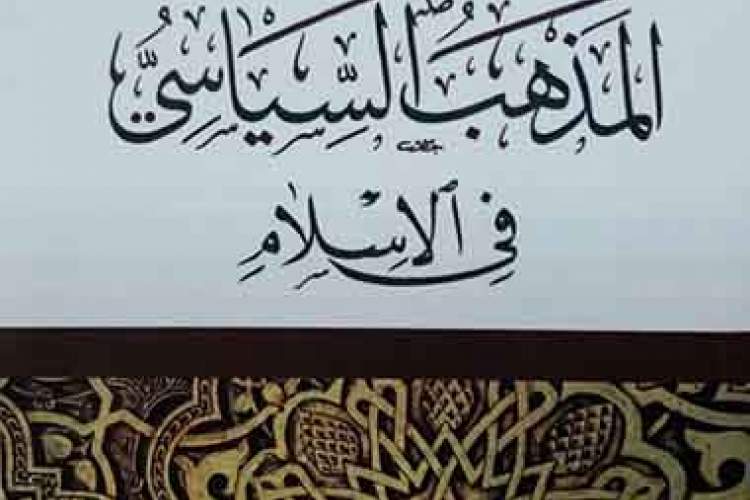 المَذْهَبُ السِّيَاسِيُّ
فِي الإِسْلَامِ